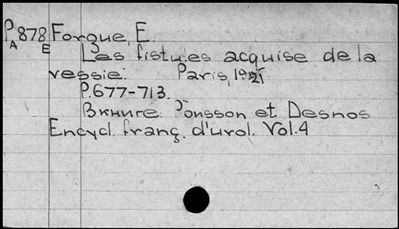 P.878 Forgue E.
A E
Les fistules acquise de la
vessie. Paris, 1921
P.677-713.
Вкниге. Pousson et Desnos
Encycl. franç. d'urol. Vol.4